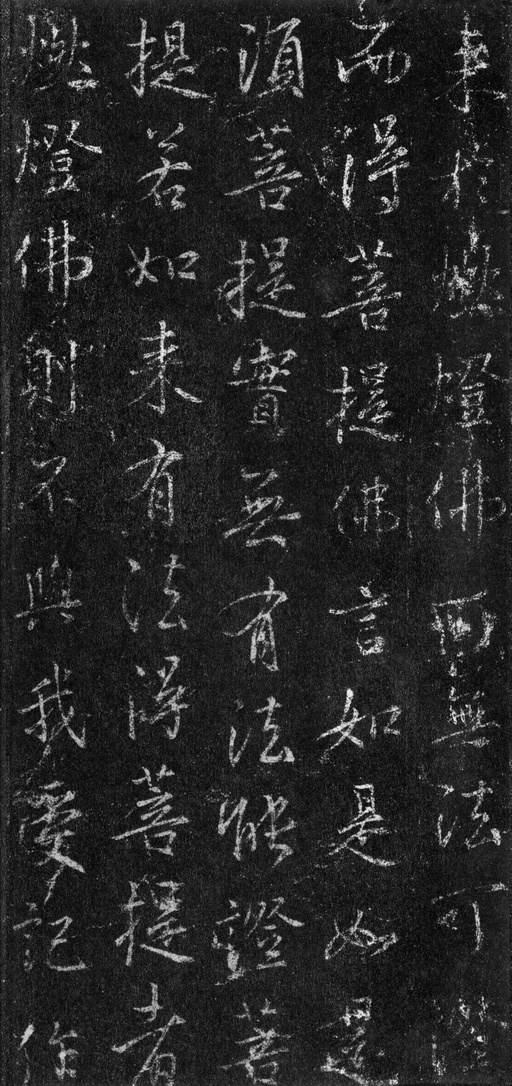 来於燃燈佛所無法可證
而得菩提佛言如是如是
須菩提實無有法能證菩
提若如来有法得菩提者
燃燈佛則不與我受記作